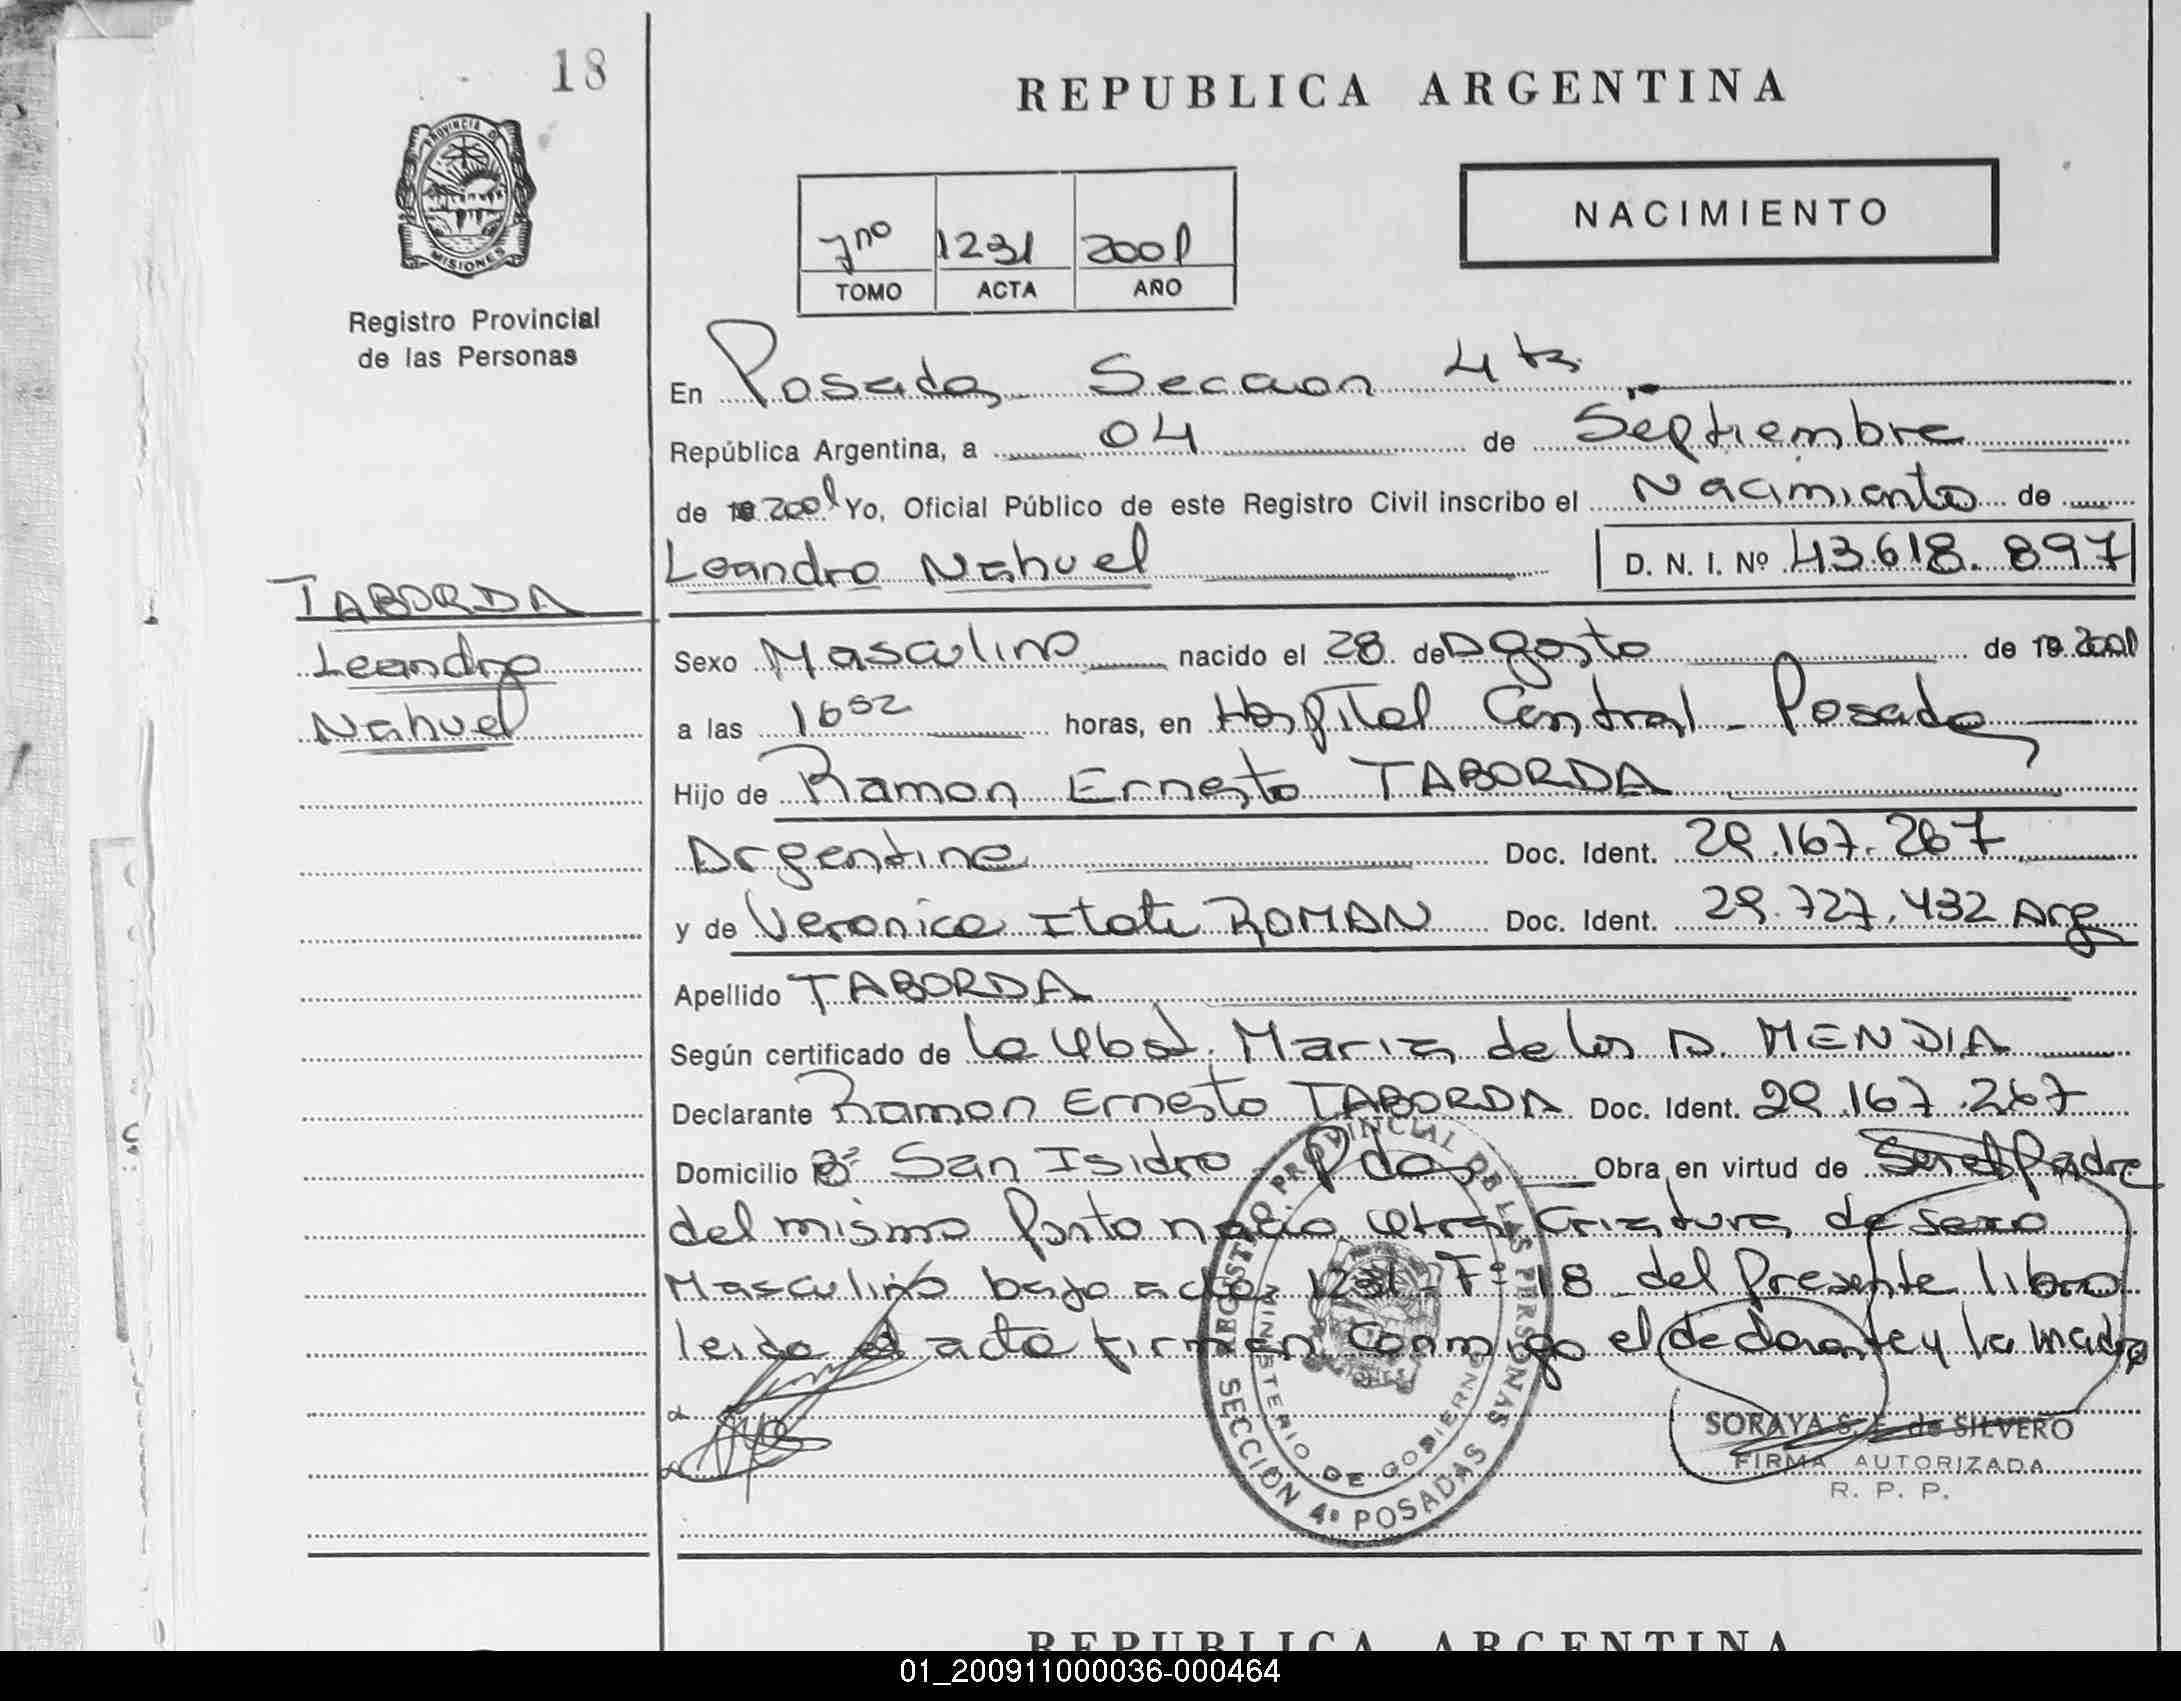 18
REPUBLICA ARGENTINA
PROVINCIA D
MISIONES
Registro Provincial
de las Personas
7no 1231 2001
TOMO ACTA AÑO
NACIMIENTO
En Posadas Seccion 4ta
República Argentina, a 04 de Septiembre
de 19 2001 Yo, Oficial Público de este Registro Civil inscribo el Nacimiento de
Leandro Nahuel D. N. I. Nº 43.618.897
TABORDA
Leandro
Nahuel
Sexo Masculino nacido el 28 de Agosto de 19 2001
a las 16 52 horas, en Hospital Central - Posadas
Hijo de Ramon Ernesto TABORDA
Argentino Doc. Ident. 29.167.267
y de Veronica Itati ROMAN Doc. Ident. 29.727.432 Arg
Apellido TABORDA
Según certificado de la Obst. Maria de los A. MENDIA
Declarante Ramon Ernesto TABORDA Doc. Ident. 29.167.267
Domicilio Bº San Isidro - Pdas Obra en virtud de Ser el Padre
del mismo parto nacio otra Criatura de sexo
Masculino bajo acta 1231 - Fº 18 del Presente libro
leida el acta firman Conmigo el declarante y la madre
REGISTRO PROVINCIAL DE LAS PERSONAS
MINISTERIO DE GOBIERNO
SECCION 4ª POSADAS
SORAYA S. E. de SILVERO
FIRMA AUTORIZADA
R. P. P.
REPUBLICA ARGENTINA
01_200911000036-000464